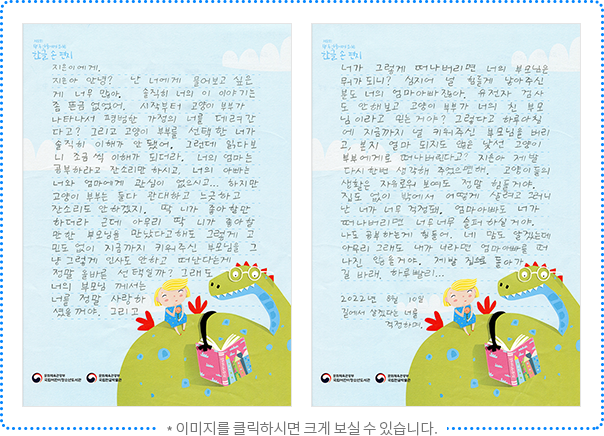 제8회
한글 손 편지
지은이에게.
지은아 안녕? 난 너에게 물어보고 싶은
게 너무 많아. 솔직히 너의 이 이야기는
좀 뜬금 없었어. 시작부터 고양이 부부가
나타나서 평범한 가정의 너를 데려간
다고? 그리고 고양이 부부를 선택한 너가
솔직히 이해가 안 됐어. 그런데 읽다보
니 조금씩 이해가 되더라. 너의 엄마는
공부하라고 잔소리만 하시고, 너의 아빠는
너와 엄마에게 관심이 없으시고... 하지만
고양이 부부는 둘다 관대하고 느긋하고
잔소리도 안하겠지. 딱 니가 좋아할만
하더라 근데 아무리 딱 니가 좋아할
만한 부모님을 만났다고해도 그렇게 고
민도 없이 지금까지 키워주신 부모님을 그
냥 그렇게 인사도 안하고 떠난다는게
정말 올바른 선택일까? 그래도
너의 부모님 께서는
너를 정말 사랑하
셨을꺼야. 그리고
문화체육관광부
국립어린이청소년도서관
문화체육관광부
국립한글박물관
제8회
한글 손 편지
너가 그렇게 떠나버리면 너의 부모님은
뭐가 되니? 심지어 널 힘들게 낳아주신
분도 너의 엄마아빠잖아. 유전자 검사
도 안해보고 고양이 부부가 너의 친 부모
님이라고 믿는거야? 그렇다고 하루아침
에 지금까지 널 키워주신 부모님을 버리
고, 본지 얼마 되지도 않은 낯선 고양이
부부에게로 떠나버린다고? 지은아 제발
다시 한번 생각해 주었으면해. 고양이들의
생활은 자유로워 보여도 정말 힘들거야.
집도 없이 밖에서 어떻게 살려고 그러니
난 너가 너무 걱정돼. 엄마아빠도 너가
떠나버리면 너무너무 슬퍼하실거야.
나도 공부하는게 힘들어. 네 맘도 알겠는데
아무리 그래도 내가 너라면 엄마아빠를 떠
나진 않을거야. 제발 집으로 돌아가
길 바래. 하루빨리...
2022년 8월 10일
길에서 살겠다는 너를
걱정하며.
문화체육관광부
국립어린이청소년도서관
문화체육관광부
국립한글박물관
* 이미지를 클릭하시면 크게 보실 수 있습니다.